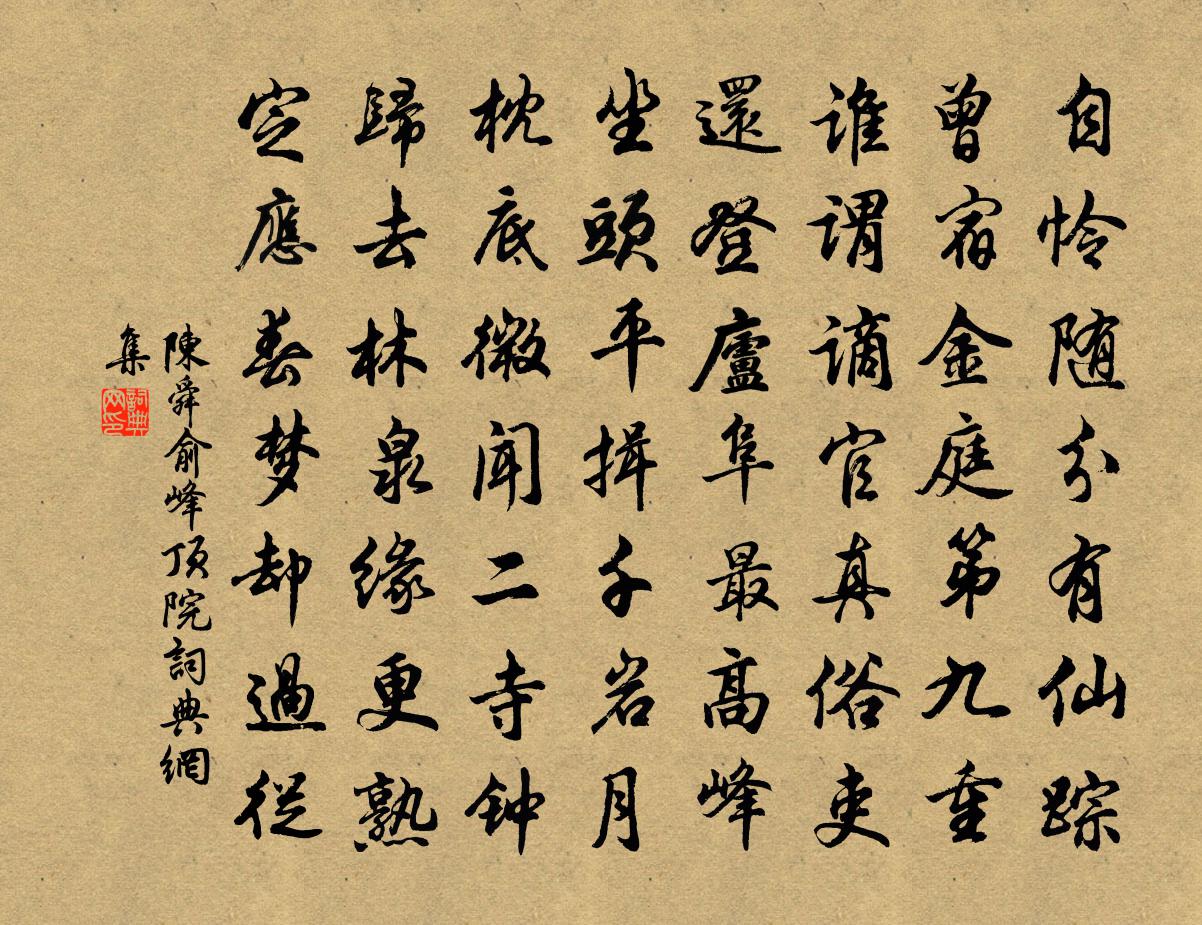 自怜随分有仙踪
曾宿金庭第九重
谁谓谪官真俗吏
還登廬阜最高峰
坐頭平揖千岩月
枕底微闻二寺钟
歸去林泉缘更熟
定應春梦却過從
陳舜俞峰顶院詞典網
集
詞典
网印